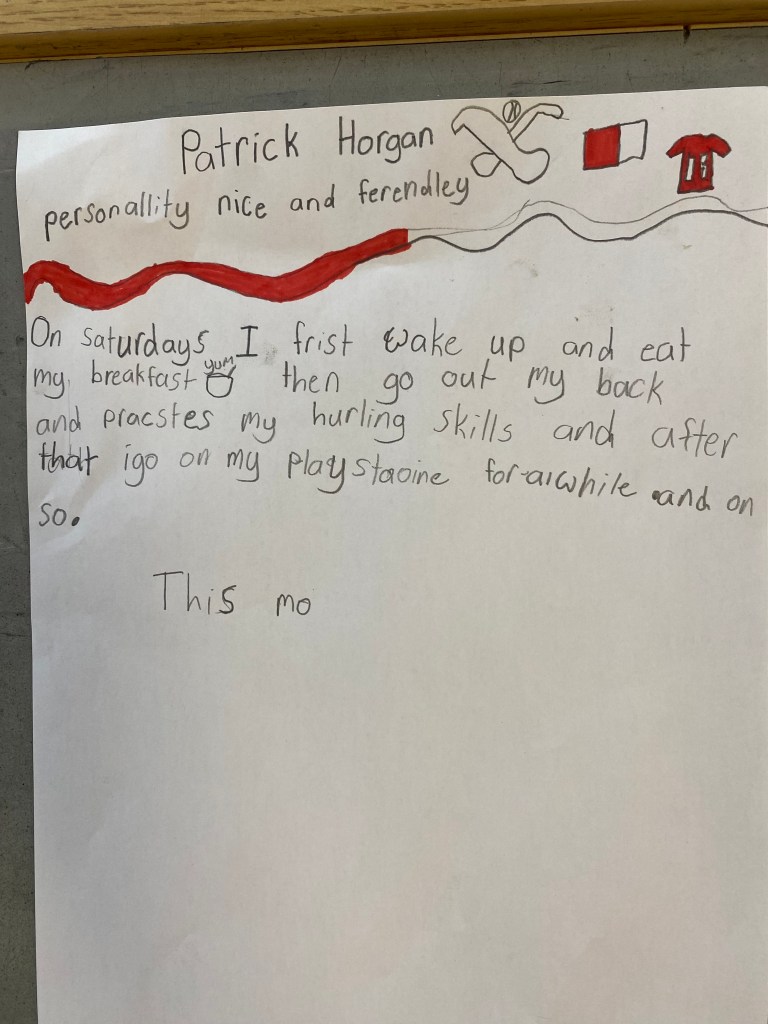 Patrick Horgan
personallity nice and ferendley
On saturdays I frist wake up and eat
yum
my breakfast then go out my back
and pracstes my hurling skills and after
that igo on my playstaoine for a while and on
so.
This mo